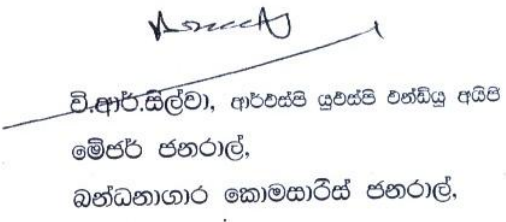 වි.ආර්.සිල්වා, ආර්එස්පී යූඑස්පී එන්ඩීයූ අයිජී
මේජර් ජනරාල්,
බන්ධනාගාර කොමසාරිස් ජනරාල්,